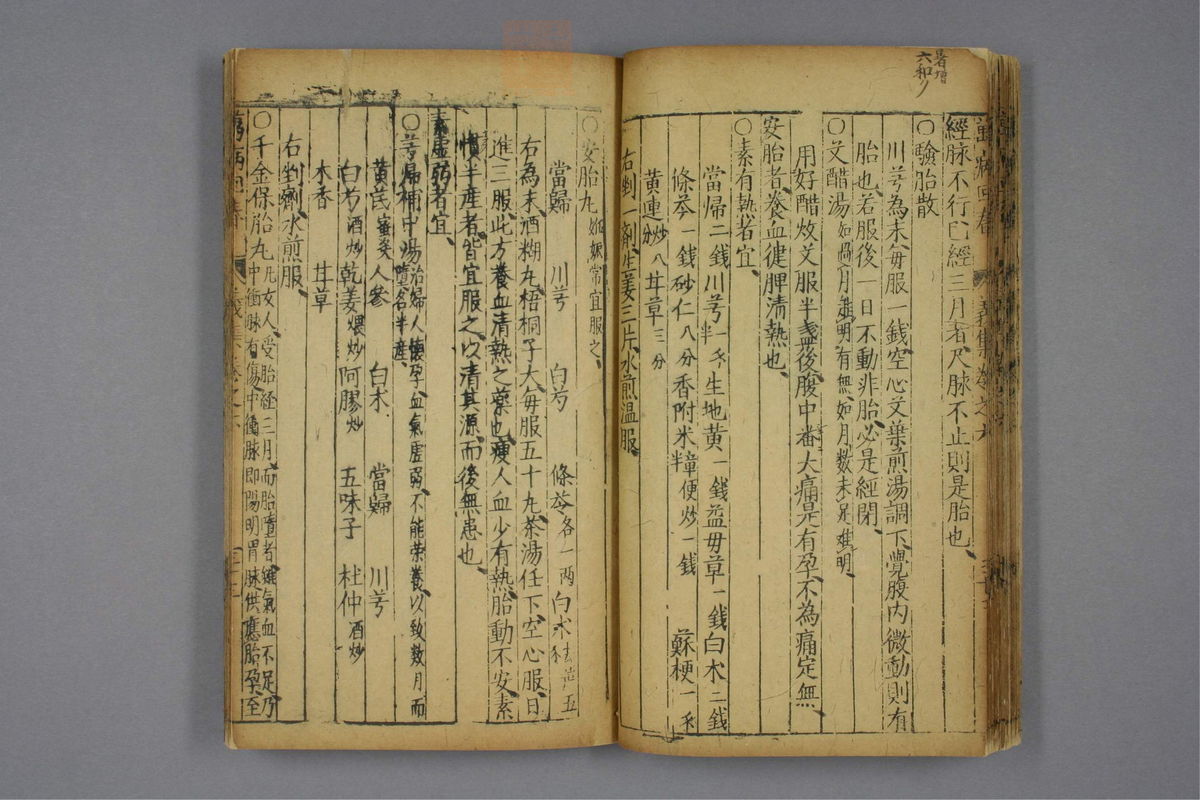 暑增
六和
萬病回春 義集卷之六
經脉不行已經三月者尺脉不止則是胎也
○驗胎散
川芎為末每服一錢空心艾葉煎湯調下覺腹内微動則有
胎也若服後一日不動非胎必是經閉
○艾醋湯 如過月難明有無如月数未足难明
用好醋炆艾服半盞後腹中番大痛是有孕不為痛定無
安胎者養血健脾清熱也
○素有熱者宜
當帰二錢 川芎一錢半 生地黄一錢 益毋草一錢 白术二錢
條芩一錢 砂仁八分 香附米童便炒一錢半 蘇梗一錢
黄連炒八分 甘草三分
右剉一劑生姜三片水煎温服
○安胎丸 姙娠常宜服之
當歸 川芎 白芍 條芩各一兩 白术去芦五
右為末酒糊丸梧桐子大每服五十丸茶湯任下空心服日
進三服此方養血清熱之藥也瘦人血少有熱胎動不安素
慣半産者皆宜服之以清其源而後無患也
素虚弱者宜
○芎歸補中湯 治婦人懐孕血氣虚弱不能荣養以致数月而墮名半産
黄芪蜜炙 人參 白术 當歸 川芎
白芍酒炒 乾姜煨炒 阿膠炒 五味子 杜仲酒炒
木香 甘草
右剉劑水煎服
○千金保胎丸 凡女人受胎経三月而胎墮者雖氣血不足乃
中衝脉有傷中衝脉即陽明胃脉供應胎孕至
萬病回春 義集卷之六